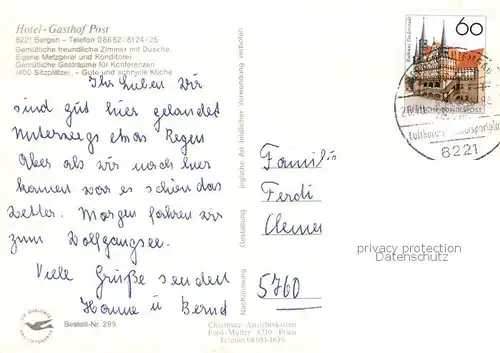 Hotel-Gasthof Post
8221 Bergen – Telefon 08662/8124/25
Gemütliche freundliche Zimmer mit Dusche.
Eigene Metzgerei und Konditorei
Gemütliche Gasträume für Konferenzen
(400 Sitzplätze). – Gute und schnelle Küche
Ihr lieben wir
sind gut hier gelandet
Unterwegs etwas Regen
Aber als wir nach hier
kamen war es schön das
Wetter. Morgen fahren wir
zum Wolfgangsee.
Viele Grüße senden
Hanne u Bernd
Bestell-Nr. 299
Chiemsee-Ansichtskarten
Foto-Müller 8210 Prien
Telefon 08051-1639
Nachahmung
Gestaltung
jegliche Art bildlicher Verwendung verboten
60
Rathaus Duderstadt
DEUTSCHE BUNDESPOST
Luftkurort
8221
Familie
Ferdi
5760
privacy protection
Datenschutz